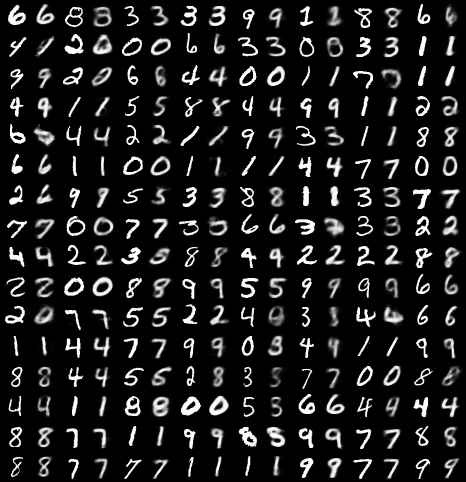 6 6 8 8 3 3 3 3 9 9 1 1 8 8 6 6
4 1 2 0 0 0 6 6 3 3 0 0 3 3 1 1
9 9 2 0 6 6 4 4 0 0 1 1 7 1 1
4 9 1 1 5 5 8 8 4 4 9 9 1 1 2 2
6 4 4 2 2 1 1 9 9 3 3 1 1 8 8
6 6 1 1 0 0 1 1 1 1 4 4 7 7 0 0
2 6 9 9 5 5 3 3 8 8 1 1 3 3 7 7
7 7 0 0 7 7 3 6 6 3 3 3 2 2
4 4 2 2 3 5 8 8 4 9 2 2 2 2 8 8
2 2 0 0 8 8 9 9 5 5 9 9 9 9 6 6
2 0 7 7 5 5 2 2 4 0 3 8 4 6 6
1 1 4 4 7 7 9 9 0 8 4 9 1 1 9 9
8 8 4 4 5 5 2 8 3 3 7 7 0 0 8 8
4 4 1 1 8 8 0 0 5 5 6 6 4 4 4 4
8 8 7 7 1 1 9 9 8 5 9 9 7 7 8 8
8 8 7 7 7 7 1 1 1 1 9 9 7 7 9 9